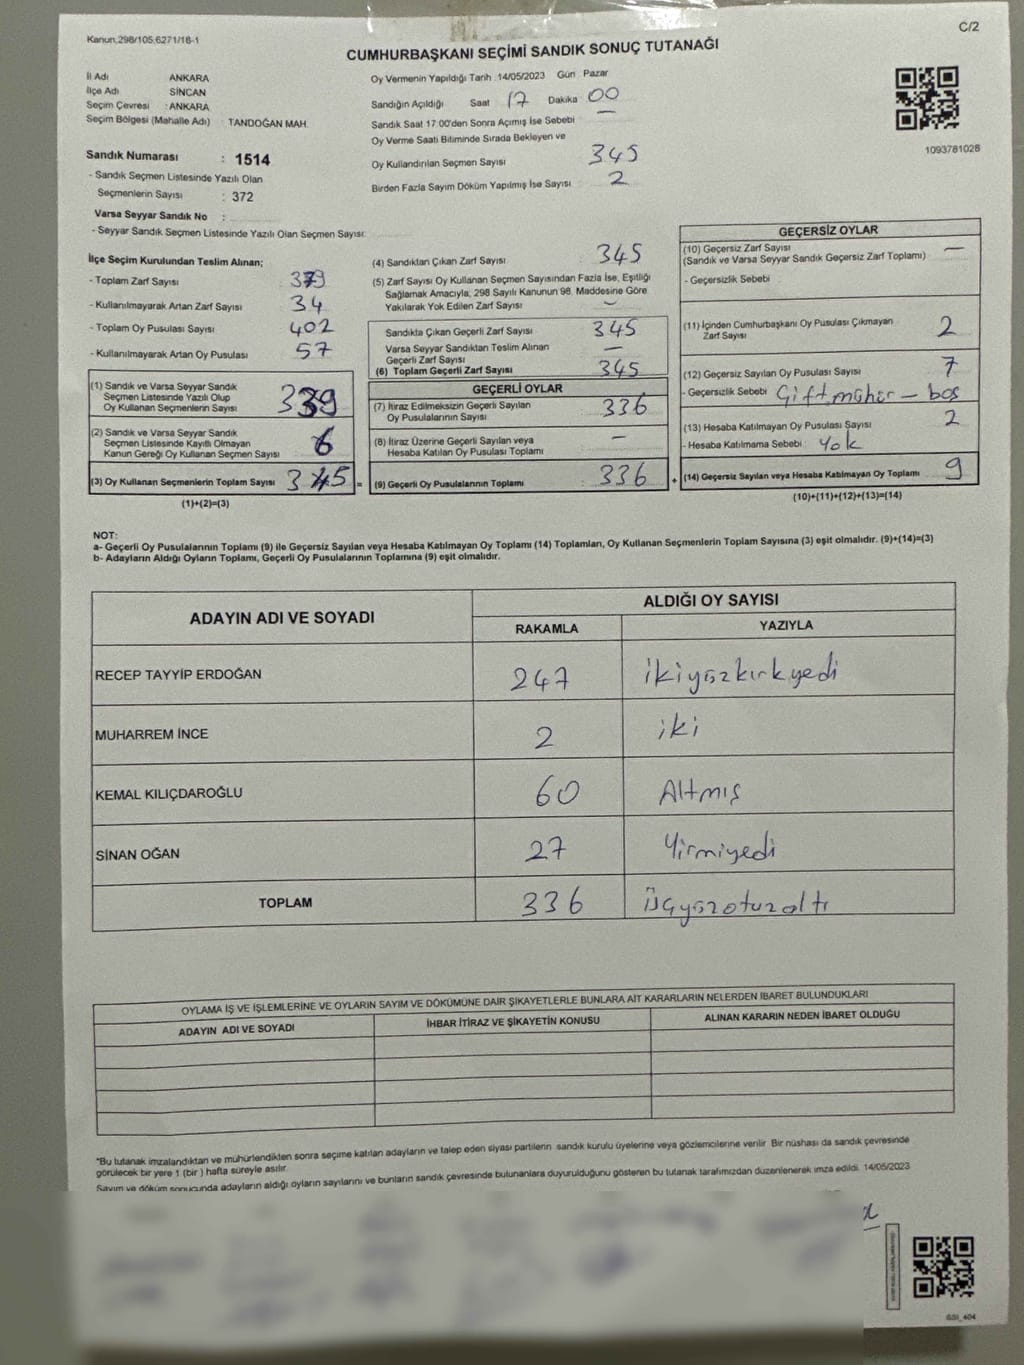 Kanun,298/105,6271/18-1
C/2
CUMHURBAŞKANI SEÇİMİ SANDIK SONUÇ TUTANAĞI
İl Adı ANKARA
İlçe Adı SİNCAN
Seçim Çevresi : ANKARA
Seçim Bölgesi (Mahalle Adı) : TANDOĞAN MAH.
Oy Vermenin Yapıldığı Tarih :14/05/2023 Gün Pazar
Sandığın Açıldığı Saat 17 Dakika : 00
Sandık Saat 17:00'den Sonra Açımış İse Sebebi : —
Oy Verme Saati Bitiminde Sırada Bekleyen ve
Oy Kullandırılan Seçmen Sayısı 345
Birden Fazla Sayım Döküm Yapılmış İse Sayısı : 2
1093781028
Sandık Numarası : 1514
- Sandık Seçmen Listesinde Yazılı Olan
Seçmenlerin Sayısı : 372
Varsa Seyyar Sandık No :
- Seyyar Sandık Seçmen Listesinde Yazılı Olan Seçmen Sayısı:
İlçe Seçim Kurulundan Teslim Alınan;
- Toplam Zarf Sayısı : 379
- Kullanılmayarak Artan Zarf Sayısı : 34
- Toplam Oy Pusulası Sayısı : 402
- Kullanılmayarak Artan Oy Pusulası : 57
(1) Sandık ve Varsa Seyyar Sandık
Seçmen Listesinde Yazılı Olup
Oy Kullanan Seçmenlerin Sayısı : 339
(2) Sandık ve Varsa Seyyar Sandık
Seçmen Listesinde Kayıtlı Olmayan
Kanun Gereği Oy Kullanan Seçmen Sayısı : 6
(3) Oy Kullanan Seçmenlerin Toplam Sayısı : 345 =
(1)+(2)=(3)
(4) Sandıktan Çıkan Zarf Sayısı : 345
(5) Zarf Sayısı Oy Kullanan Seçmen Sayısından Fazla İse, Eşitliği
Sağlamak Amacıyla, 298 Sayılı Kanunun 98. Maddesine Göre
Yakılarak Yok Edilen Zarf Sayısı : —
Sandıkta Çıkan Geçerli Zarf Sayısı : 345
Varsa Seyyar Sandıktan Teslim Alınan
Geçerli Zarf Sayısı : —
(6) Toplam Geçerli Zarf Sayısı : 345
GEÇERLİ OYLAR
(7) İtiraz Edilmeksizin Geçerli Sayılan
Oy Pusulalarının Sayısı : 336
(8) İtiraz Üzerine Geçerli Sayılan veya
Hesaba Katılan Oy Pusulası Toplamı : —
(9) Geçerli Oy Pusulalarının Toplamı : 336 +
GEÇERSİZ OYLAR
(10) Geçersiz Zarf Sayısı : —
(Sandık ve Varsa Seyyar Sandık Geçersiz Zarf Toplamı)
- Geçersizlik Sebebi :
(11) İçinden Cumhurbaşkanı Oy Pusulası Çıkmayan
Zarf Sayısı : 2
(12) Geçersiz Sayılan Oy Pusulası Sayısı : 7
- Geçersizlik Sebebi : Çift mühür – boş
(13) Hesaba Katılmayan Oy Pusulası Sayısı : 2
- Hesaba Katılmama Sebebi : Yok
(14) Geçersiz Sayılan veya Hesaba Katılmayan Oy Toplamı : 9
(10)+(11)+(12)+(13)=(14)
NOT:
a- Geçerli Oy Pusulalarının Toplamı (9) ile Geçersiz Sayılan veya Hesaba Katılmayan Oy Toplamı (14) Toplamları, Oy Kullanan Seçmenlerin Toplam Sayısına (3) eşit olmalıdır. (9)+(14)=(3)
b- Adayların Aldığı Oyların Toplamı, Geçerli Oy Pusulalarının Toplamına (9) eşit olmalıdır.
ADAYIN ADI VE SOYADI
ALDIĞI OY SAYISI
RAKAMLA YAZIYLA
RECEP TAYYİP ERDOĞAN 247 ikiyüzkırkyedi
MUHARREM İNCE 2 iki
KEMAL KILIÇDAROĞLU 60 Altmış
SİNAN OĞAN 27 Yirmiyedi
TOPLAM 336 üçyüzotuzaltı
OYLAMA İŞ VE İŞLEMLERİNE VE OYLARIN SAYIM VE DÖKÜMÜNE DAİR ŞİKAYETLERLE BUNLARA AİT KARARLARIN NELERDEN İBARET BULUNDUKLARI
ADAYIN ADI VE SOYADI İHBAR İTİRAZ VE ŞİKAYETİN KONUSU ALINAN KARARIN NEDEN İBARET OLDUĞU
*Bu tutanak imzalandıktan ve mühürlendikten sonra seçime katılan adayların ve talep eden siyasi partilerin sandık kurulu üyelerine veya gözlemcilerine verilir. Bir nüshası da sandık çevresinde
görülecek bir yere 1 (bir ) hafta süreyle asılır.
Sayım ve döküm sonucunda adayların aldığı oyların sayılarını ve bunların sandık çevresinde bulunanlara duyurulduğunu gösteren bu tutanak tarafımızdan düzenlenerek imza edildi. 14/05/2023